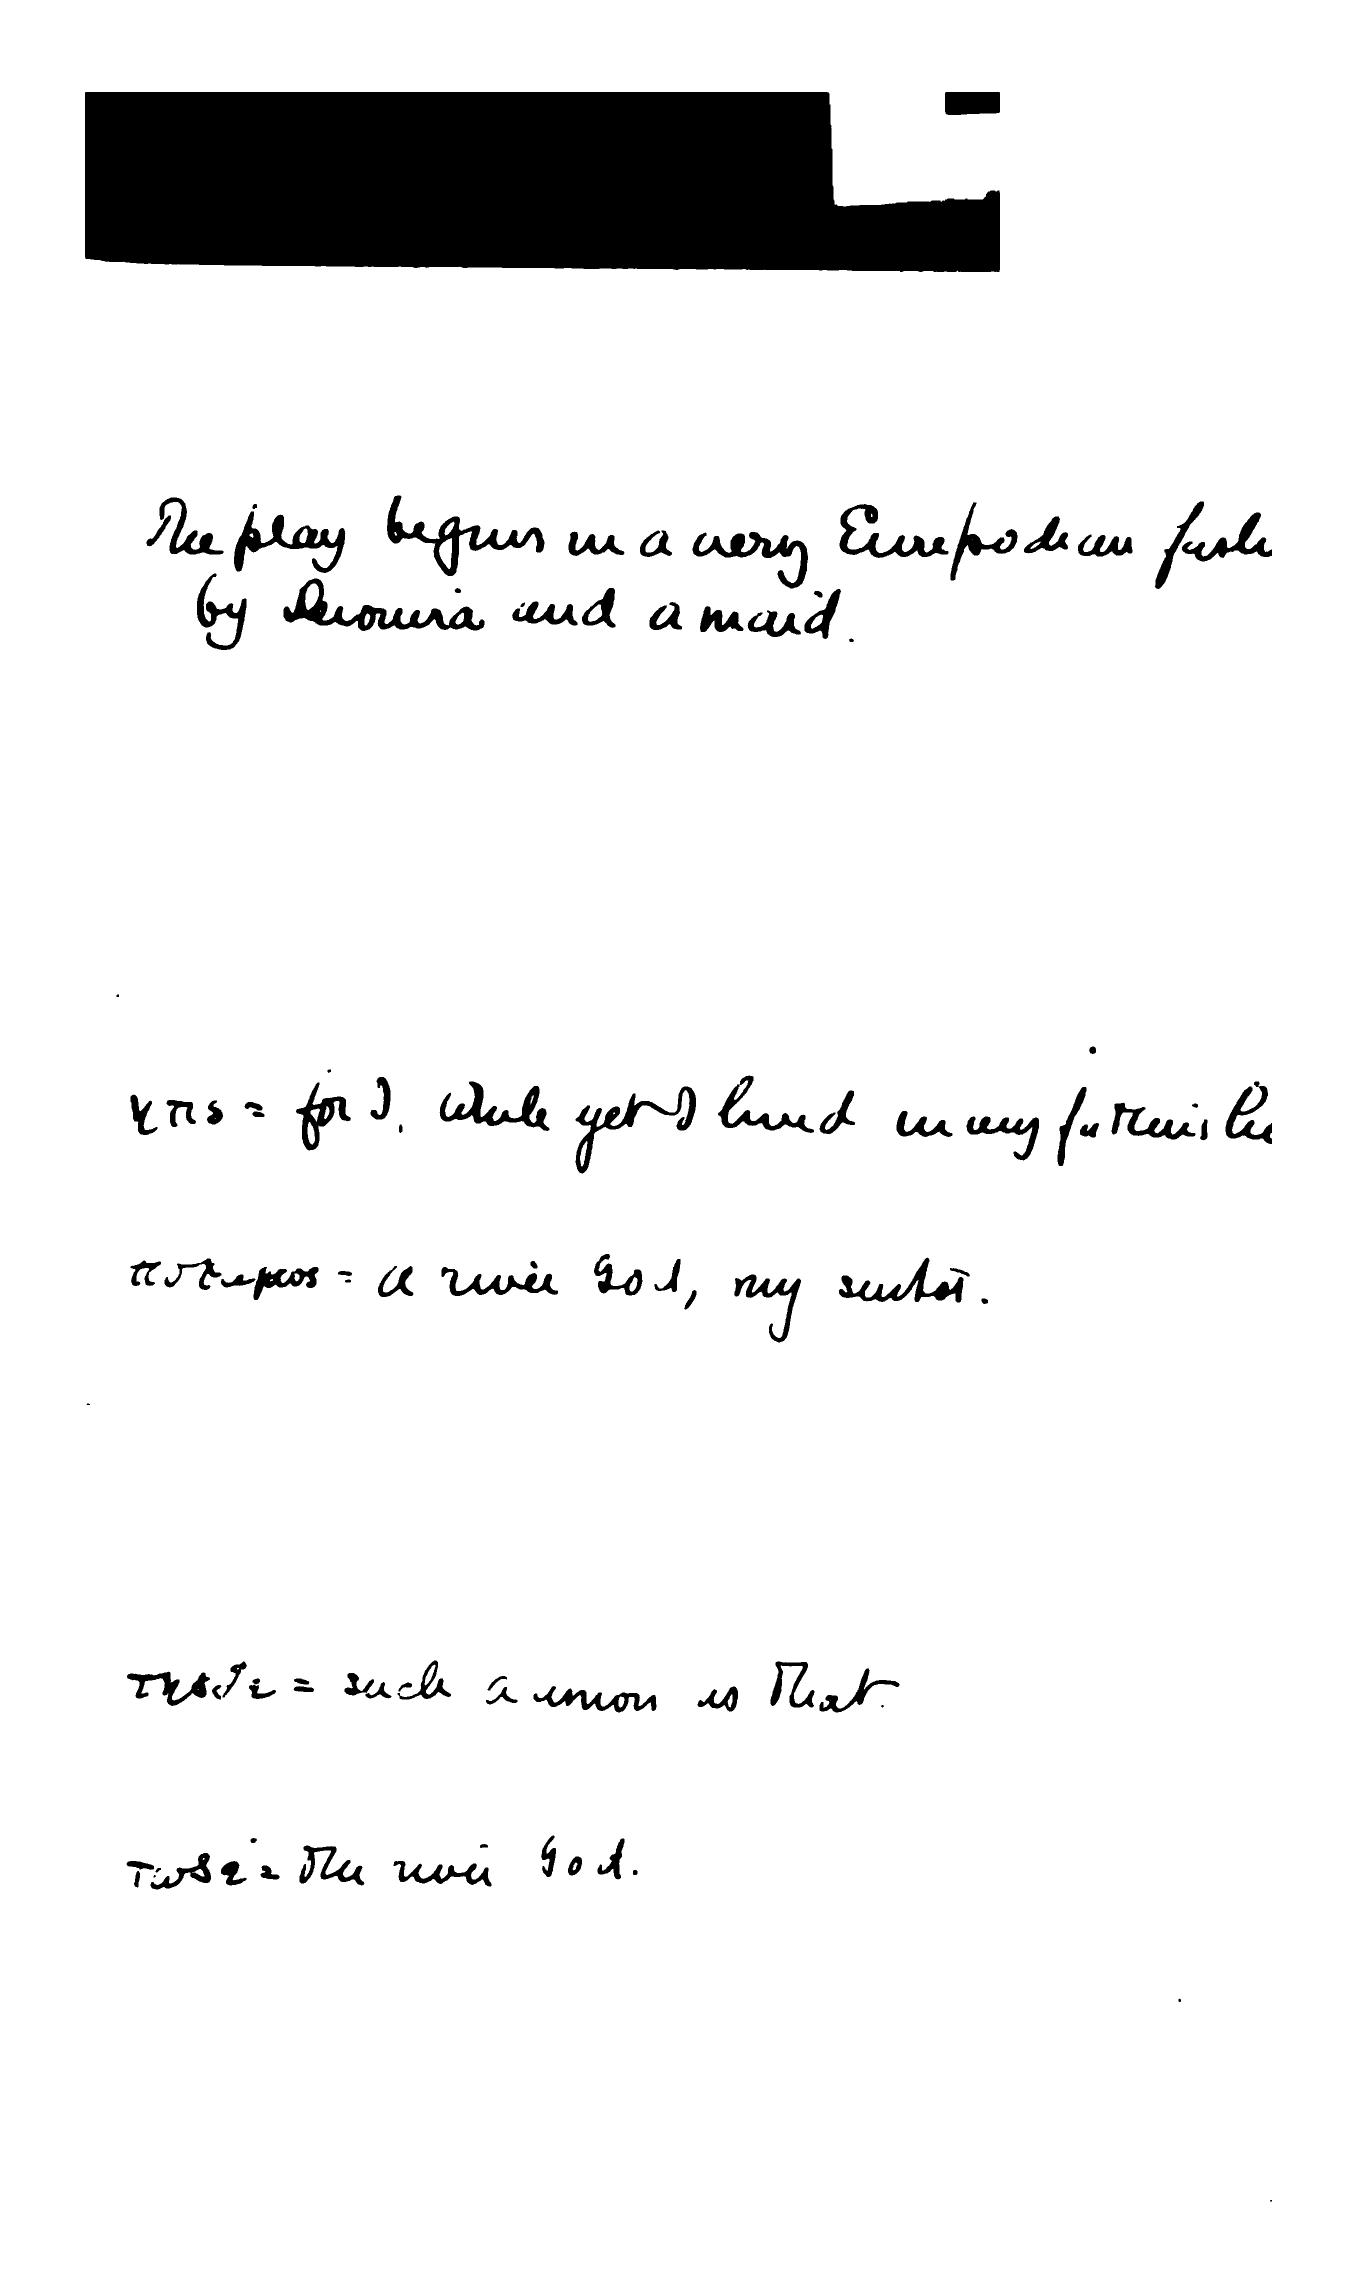 The play begins in a very Euripodean fash
by Deianira and a maid.
ητις = for I, while yet I lived in my father's
ποταμος = a river God, my suitor.
τησδε = such a union is that.
τωδε = the river God.